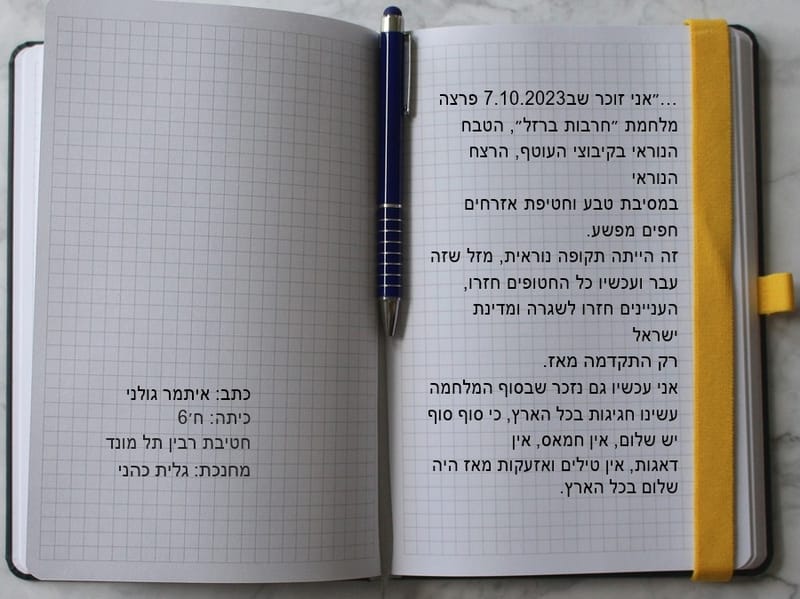 ...״אני זוכר שב7.10.2023 פרצה
מלחמת ״חרבות ברזל״, הטבח
הנוראי בקיבוצי העוטף, הרצח
הנוראי
במסיבת טבע וחטיפת אזרחים
חפים מפשע.
זה הייתה תקופה נוראית, מזל שזה
עבר ועכשיו כל החטופים חזרו,
העניינים חזרו לשגרה ומדינת
ישראל
רק התקדמה מאז.
אני עכשיו גם נזכר שבסוף המלחמה
עשינו חגיגות בכל הארץ, כי סוף סוף
יש שלום, אין חמאס, אין
דאגות, אין טילים ואזעקות מאז היה
שלום בכל הארץ.
כתב: איתמר גולני
כיתה: ח׳6
חטיבת רבין תל מונד
מחנכת: גלית כהני